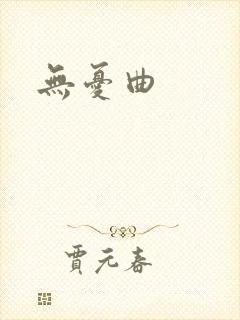 無憂曲
賈元春